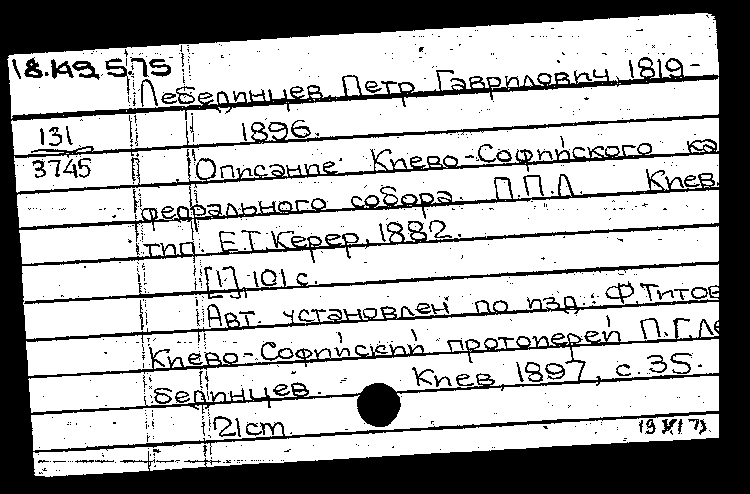 18.149.5.75
Лебединцев, Петр Гаврилович, 1819-
131 1896.
3745 Описание Киево-Софийского ка
федрального собора. П.П.Л. Киев.
тип. Е.Т.Керер, 1882.
[1], 101 с.
Авт. установлен по изд.: Ф.Титов
Киево-Софийский протоиерей П.Г.Ле
бединцев. Киев, 1897, с. 35.
21cm